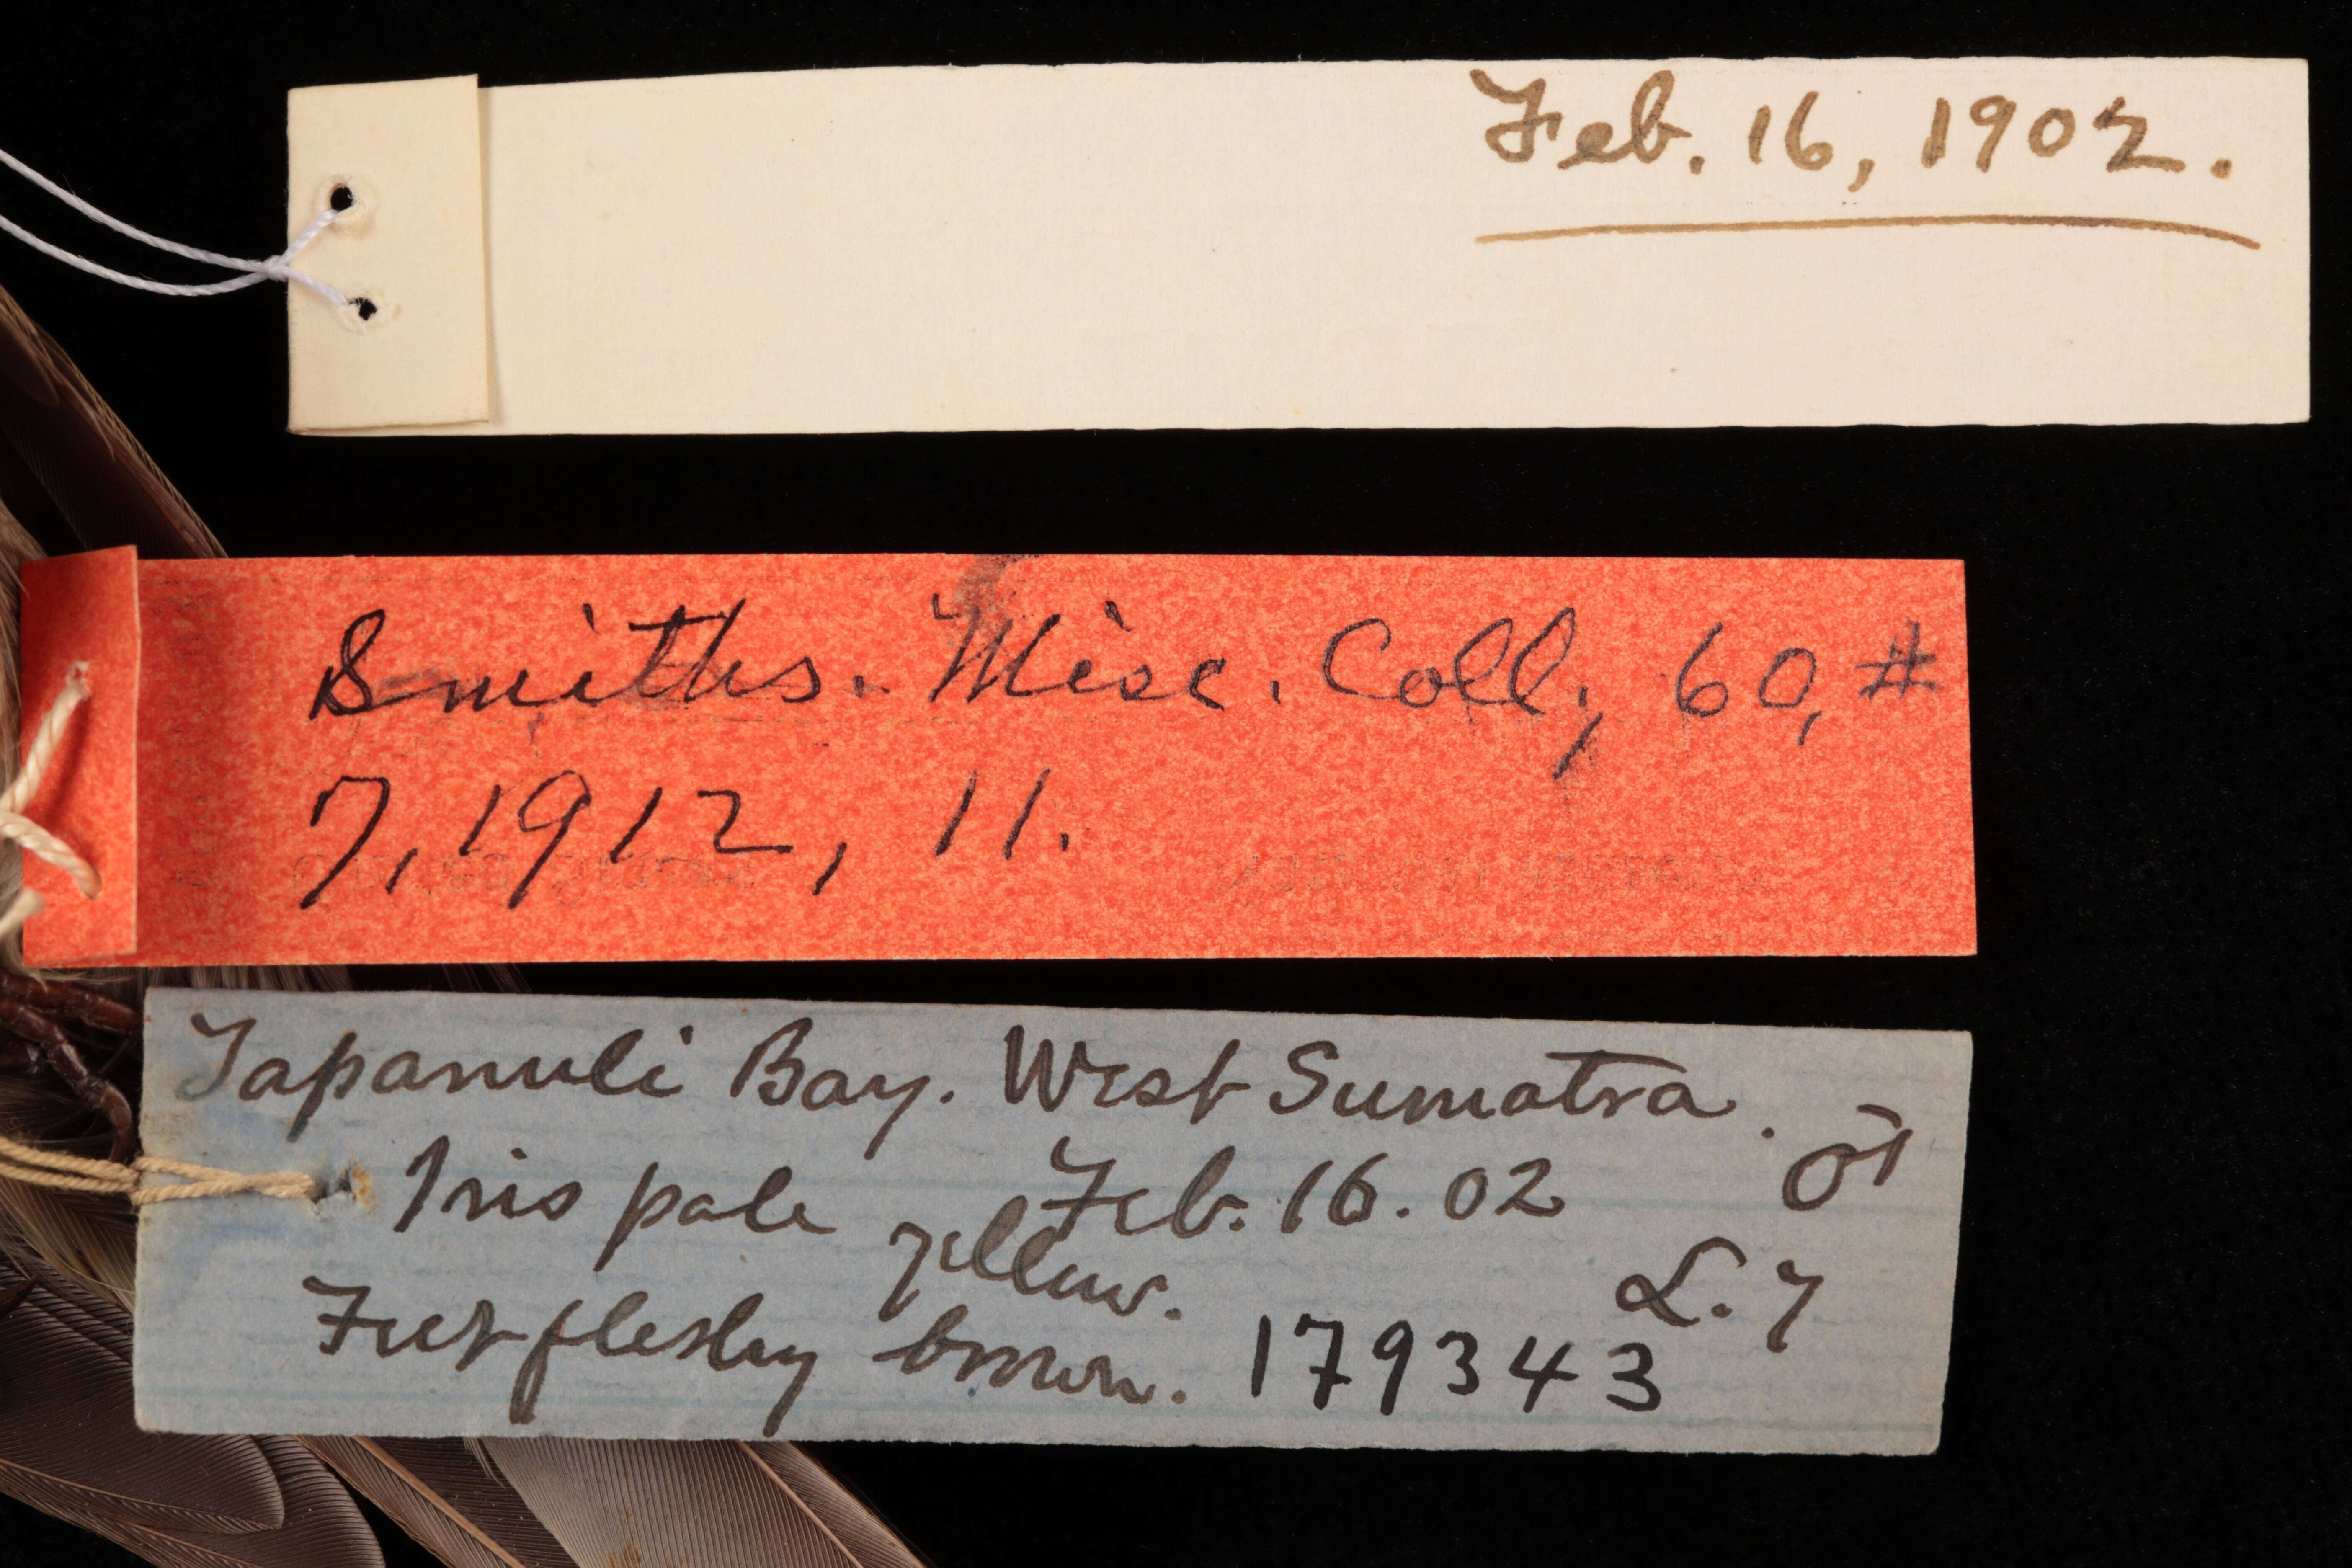 Feb. 16, 1902.
Smiths. Misc. Coll., 60, #
7, 1912, 11.
Tapanuli Bay. West Sumatra.
Iris pale Feb. 16. 02 ♂
yellow. L. 7
Feet fleshy brown. 179343